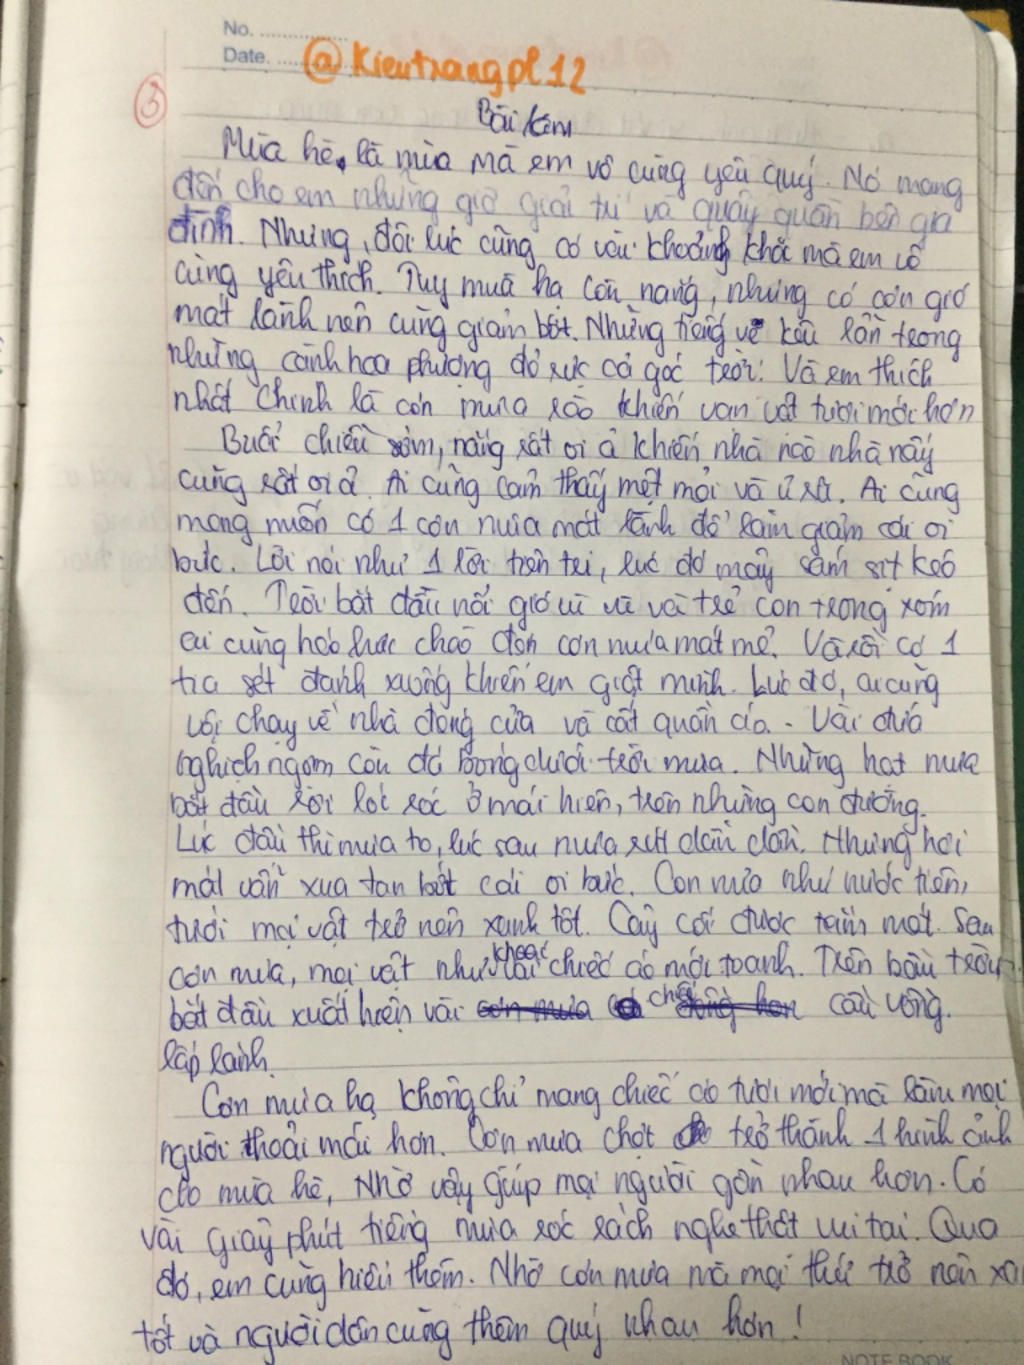 No. ..............
Date. .... @Kieutrangpl12
③
Bài làm
Mùa hè, là mùa mà em vô cùng yêu quý. Nó mang
đến cho em những giờ giải trí và quây quần bên gia
đình. Nhưng, đôi lúc cũng có vài khoảng khắc mà em vô
cùng yêu thích. Tuy mùa hạ còn nắng, nhưng có cơn gió
mát lành nên cũng giảm bớt. Những tiếng ve kêu lẫn trong
những cành hoa phượng đỏ rực cả góc trời. Và em thích
nhất chính là cơn mưa rào khiến vạn vật tươi mới hơn
Buổi chiều sớm, nắng rất oi ả khiến nhà nào nhà nấy
cũng rất oi ả. Ai cũng cảm thấy mệt mỏi và ủ rũ. Ai cũng
mong muốn có 1 cơn mưa mát lành để làm giảm cái oi
bức. Lời nói như 1 lời tiên tri, lúc đó mây sầm sịt kéo
đến. Trời bắt đầu nổi gió ù ù và trẻ con trong xóm
ai cũng háo hức chào đón cơn mưa mát mẻ. Và rồi có 1
tia sét đánh xuống khiến em giật mình. Lúc đó, ai cũng
vội chạy về nhà đóng cửa và cất quần áo. Vài đứa
nghịch ngợm còn đá bóng dưới trời mưa. Những hạt mưa
bắt đầu rơi lóc róc ở mái hiên, trên những con đường.
Lúc đầu thì mưa to, lúc sau mưa rút dần dần. Nhưng hơi
mát vẫn xua tan bớt cái oi bức. Cơn mưa như nước tiên,
tưới mọi vật trở nên xanh tốt. Cây cối được tắm mát. Sau
cơn mưa, mọi vật như khoác chiếc áo mới toanh. Trên bầu trời
bắt đầu xuất hiện vài chiếc cầu vồng.
lấp lánh.
Cơn mưa hạ không chỉ mang chiếc áo tươi mới mà làm mọi
người thoải mái hơn. Cơn mưa chợt trở thành 1 hình ảnh
cho mùa hè, Nhờ vậy giúp mọi người gần nhau hơn. Có
vài giây phút tiếng mưa róc rách nghe thật vui tai. Qua
đó, em cũng hiểu thêm. Nhờ cơn mưa mà mọi thứ trở nên xa
tốt và người dân cũng thêm quý nhau hơn!
NOTE BOOK